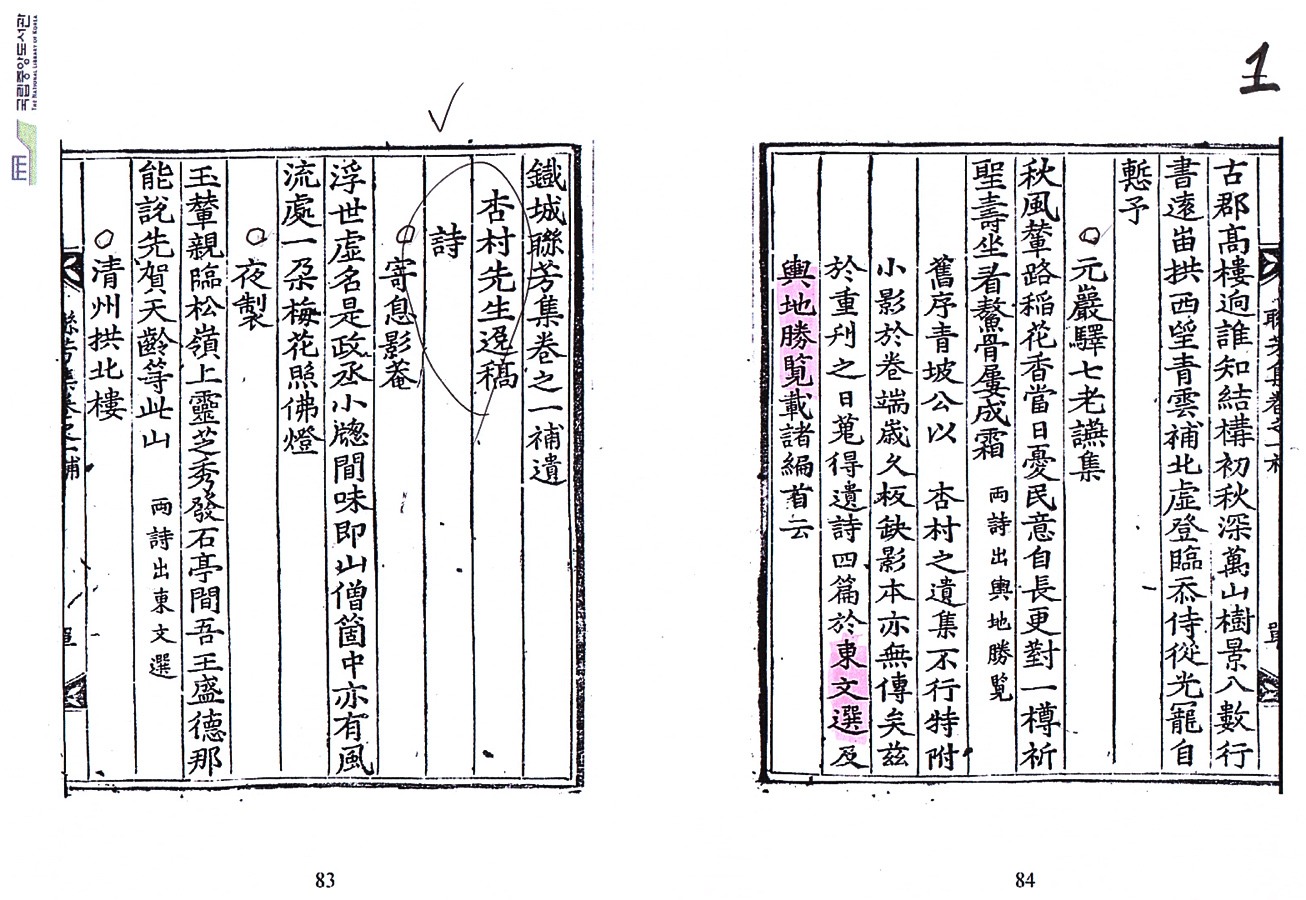 국립중앙도서관
THE NATIONAL LIBRARY OF KOREA
1
鐵城聯芳集卷之一補遺
杏村先生逸稿
詩
寄息影菴
浮世虛名是政丞小牕閒味即山僧箇中亦有風
流處一朶梅花照佛燈
夜製
玉輦親臨松嶺上靈芝秀發石亭間吾王盛德那
能說先賀天齡等此山 両詩出東文選
清州拱北樓
83
聯芳集卷之一補
古郡高樓逈誰知結構初秋深萬山樹景入數行
書遠岫拱西望青雲補北虛登臨忝侍從光寵自
慙予
元巖驛七老讌集
秋風輦路稻花香當日憂民意自長更對一樽祈
聖壽坐看鰲骨屢成霜 両詩出輿地勝覧
舊序青坡公以 杏村之遺集不行特附
小影於卷端歳久板缺影本亦無傳矣茲
於重刋之日蒐得遺詩四篇於東文選及
輿地勝覧載諸編首云
84